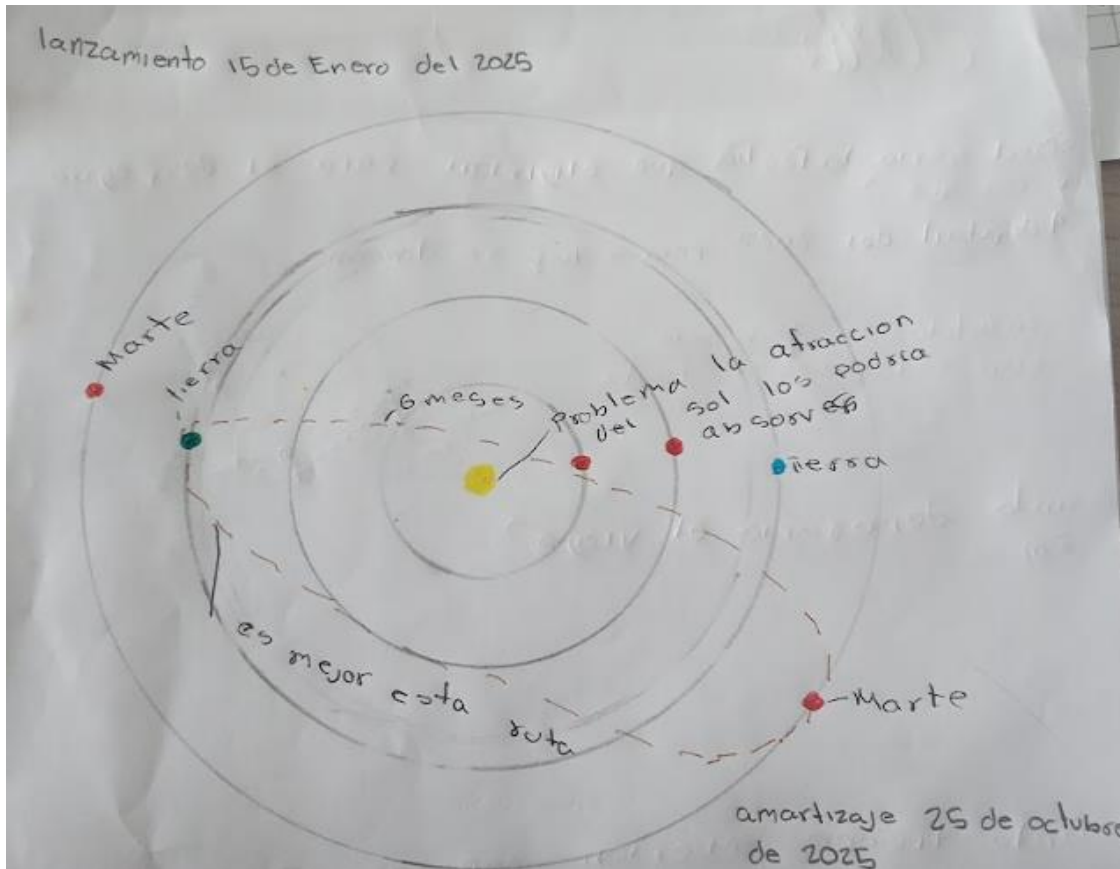 lanzamiento 15 de Enero del 2025
Marte
tierra
6 meses
Problema la atraccion
del sol los podria
absorver
tierra
es mejor esta ruta
Marte
amartizaje 25 de octubre
de 2025